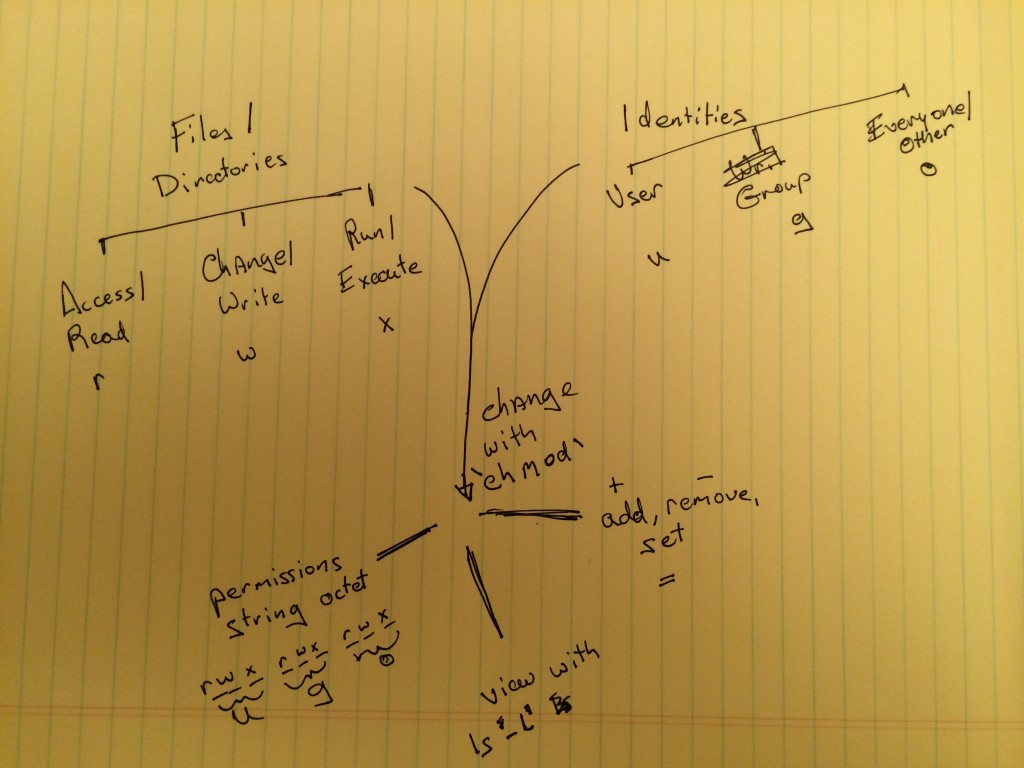 Files /
Directories
Access/
Read
r
Change/
Write
w
Run/
Execute
x
Identities
User
u
Group
g
Everyone/
Other
o
change
with
`chmod`
+ -
add, remove,
set
=
permissions
string octet
rwx rwx rwx
u g o
view with
ls '-l'